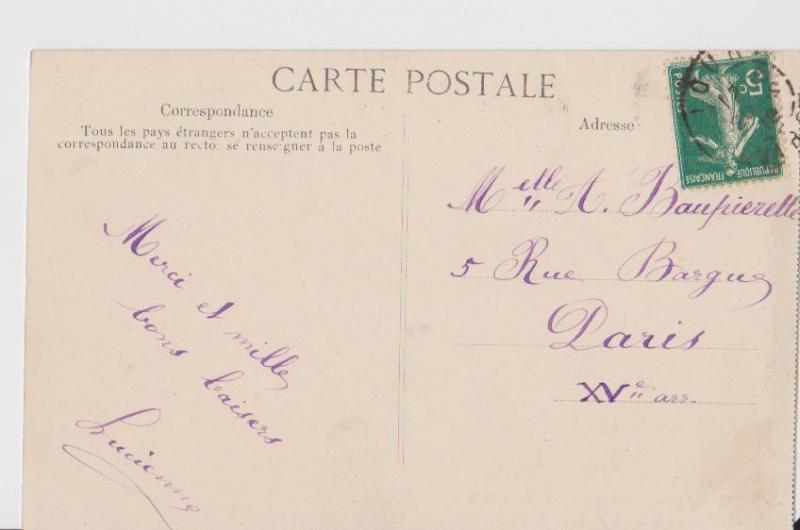 CARTE POSTALE
Correspondance
Tous les pays étrangers n'acceptent pas la
correspondance au recto, se renseigner à la poste
Merci et milles
bons baisers
Lucienne
Adresse
Melle A. Baupierette
5 Rue Bargue
Paris
XVe arr.
5c
POSTES
RÉPUBLIQUE FRANÇAISE